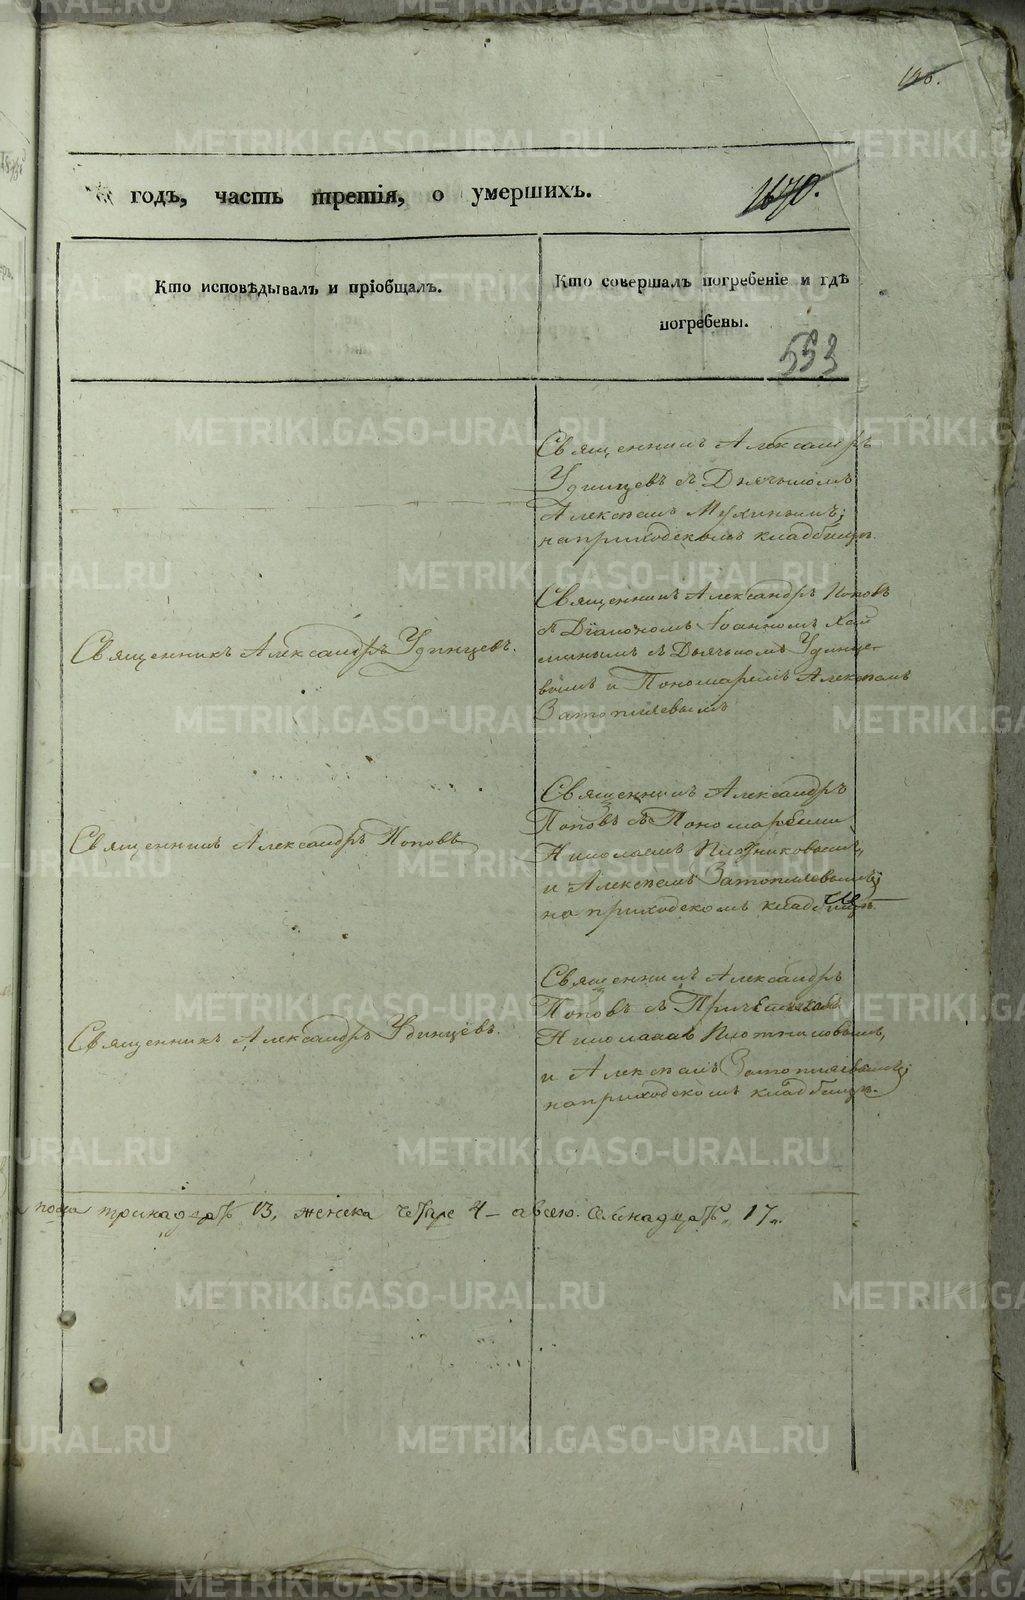 годъ, часть третія, о умершихъ.
1670.
Кто исповѣдывалъ и пріобщалъ.
Кто совершалъ погребеніе и гдѣ
погребены.
553
Священникъ Александръ
Удинцевъ съ Дьячькомъ
Алексѣемъ Мухинымъ;
на приходскомъ кладбищѣ.
Священникъ Александръ Удинцевъ.
Священникъ Александръ Поповъ
съ Діакономъ Іоанномъ
съ Дьячькомъ Удинце-
вымъ и Пономаремъ Алексѣемъ
Затопляевымъ
Священникъ Александръ Поповъ
Священникъ Александръ
Поповъ съ Пономарями
Николаемъ Плотниковымъ,
и Алексѣемъ Затопляевымъ;
на приходскомъ кладбищѣ.
Священникъ Александръ Удинцевъ.
Священникъ Александръ
Поповъ съ
Плотниковымъ,
и Алексѣемъ Затопляевымъ;
на приходскомъ кладбищѣ.
пола тринадцать 13, женска четыре 4 – а всего семнадцать 17.
METRIKI.GASO-URAL.RU